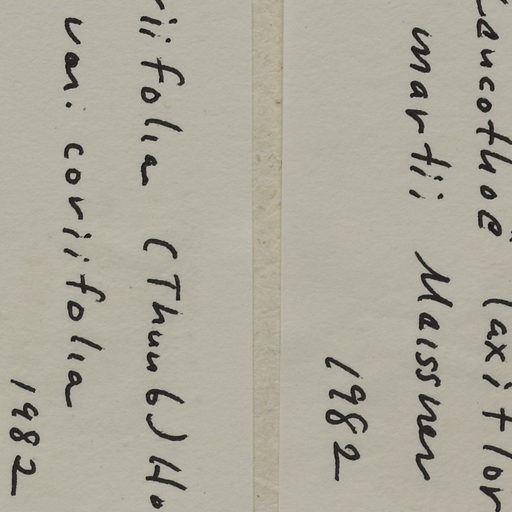 Leucothoë laxiflor
martii Meissner
1982
riifolia (Thunb) Ho
var. coriifolia
1982